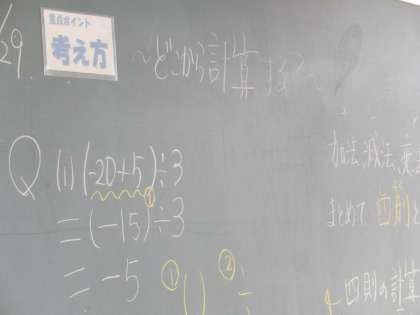 1/29
重点ポイント
考え方
~どこから計算する?~
Q (1) (-20+5)÷3
=(-15)÷3
=-5
① ( ) ② ÷
加法,減法,乗法
まとめて四則と
四則の計算